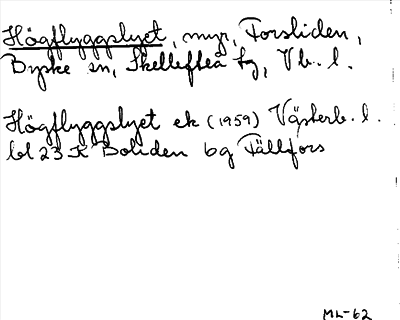 Högflyggslyet, myr, Forsliden,
Byske sn, Skellefteå tg, Vb. l.
Högflyggslyet ek (1959) Västerb. l.
bl 23 K Boliden bg Fällfors
ML-62